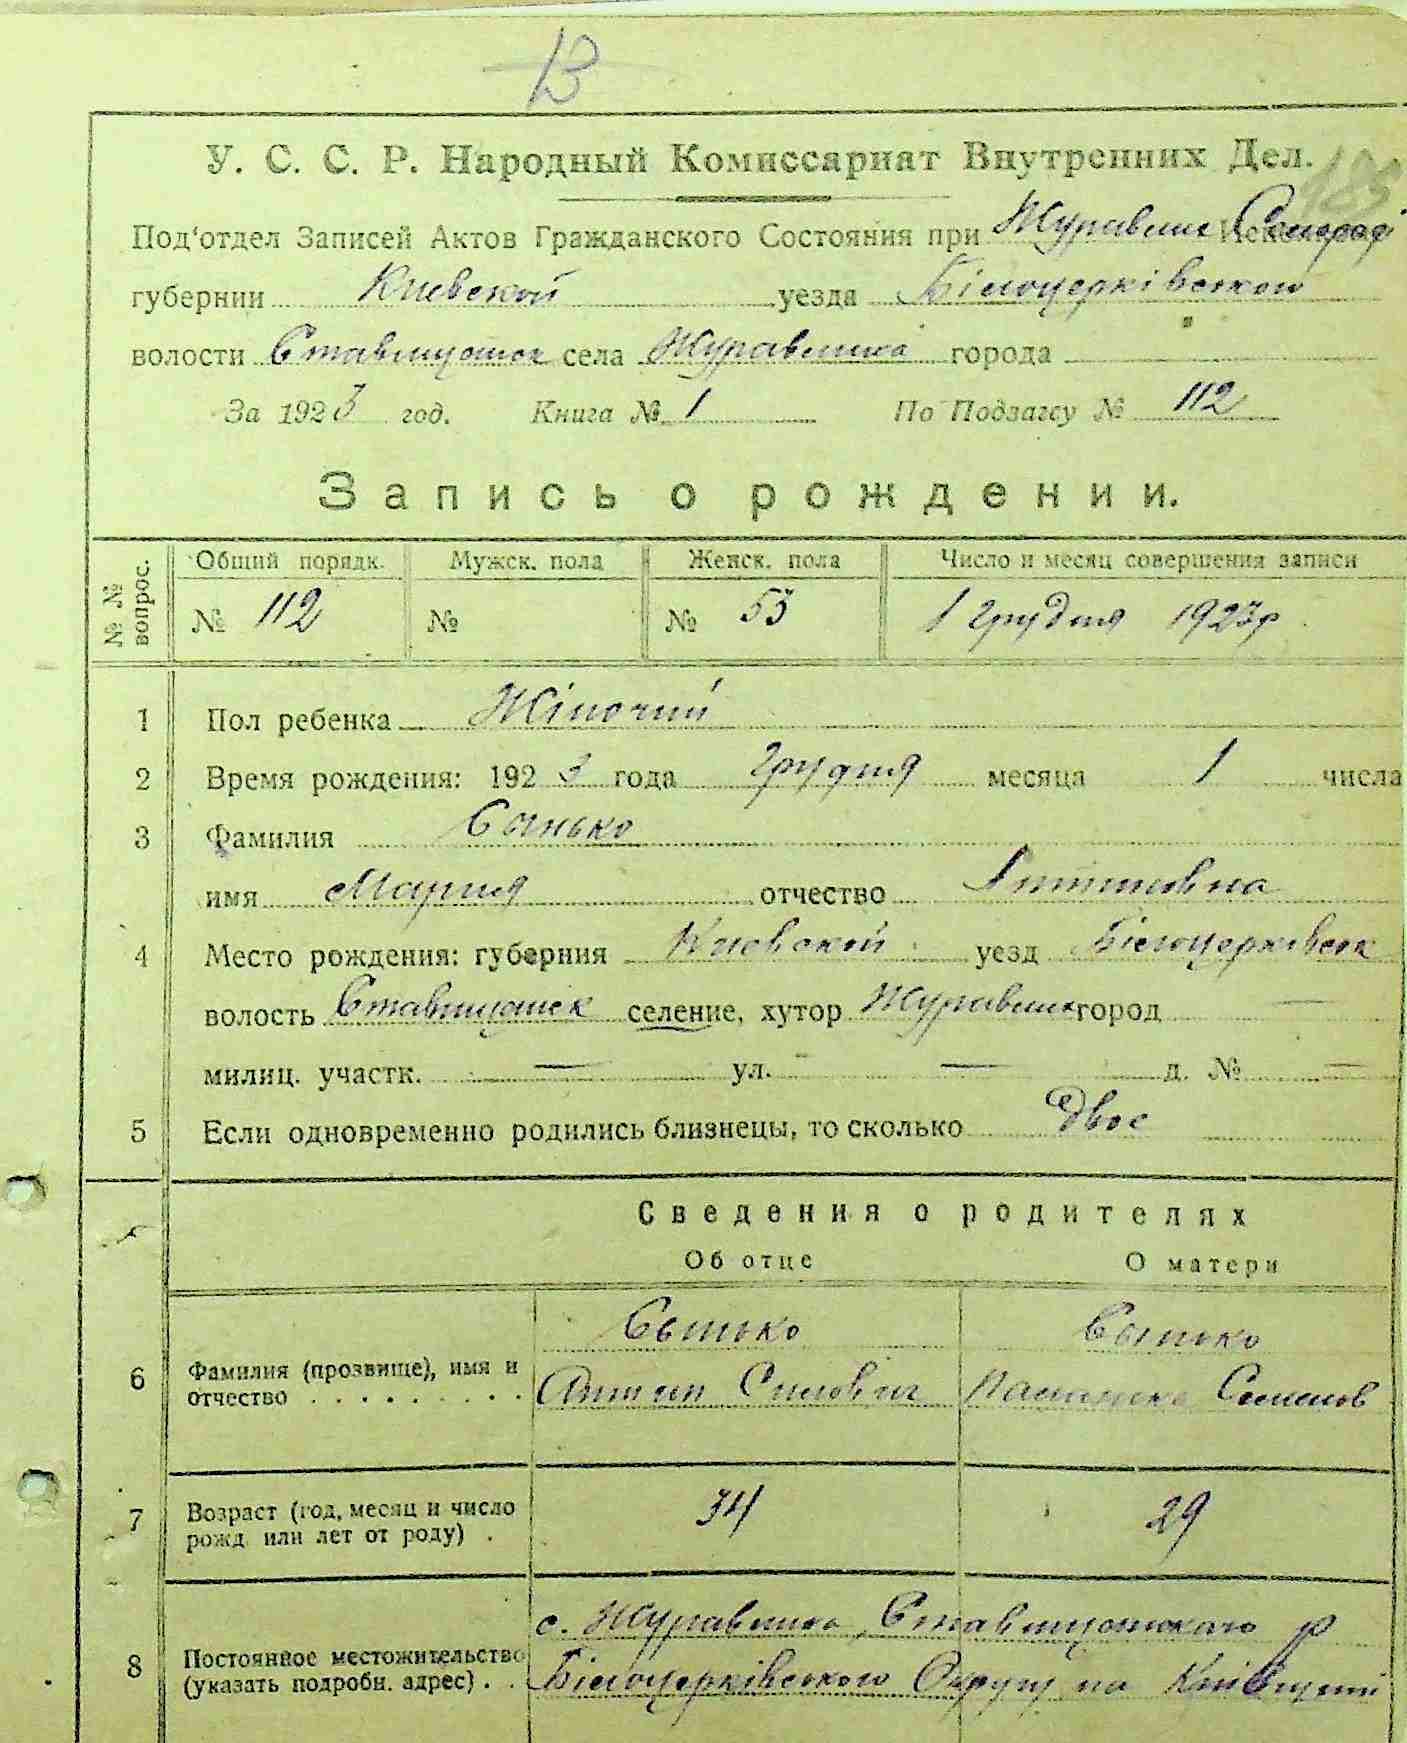 13
185
У. С. С. Р. Народный Комиссариат Внутренних Дел.
Под‘отдел Записей Актов Гражданского Состояния при Журавлис
губернии Киевской уезда Білоцерківського
волости Ставищанск села Журавлиха города
За 1923 год. Книга № 1 По Подзагсу № 112
Запись о рождении.
№ № вопрос. Общий порядк. Мужск. пола Женск. пола Число и месяц совершения записи
№ 112 № № 53 1 Грудня 1923р.
1 Пол ребенка Жіночий
2 Время рождения: 1923 года Грудня месяца 1 числа
3 Фамилия Сынько
имя Мария отчество Антиповна
4 Место рождения: губерния Киевской уезд Білоцерківск
волость Ставищанск селение, хутор Журавлих город —
милиц. участк. — ул. — д. № —
5 Если одновременно родились близнецы, то сколько Двос
Сведения о родителях
Об отце О матери
Сынько Сынько
6 Фамилия (прозвище), имя и отчество . . . . . . . . Антип Силович Семенов
7 Возраст (год, месяц и число рожд. или лет от роду) . 34 29
с. Журавлиха, Ставищанского р
8 Постоянное местожительство (указать подробн. адрес) . . Білоцерківського Округу на Київщині